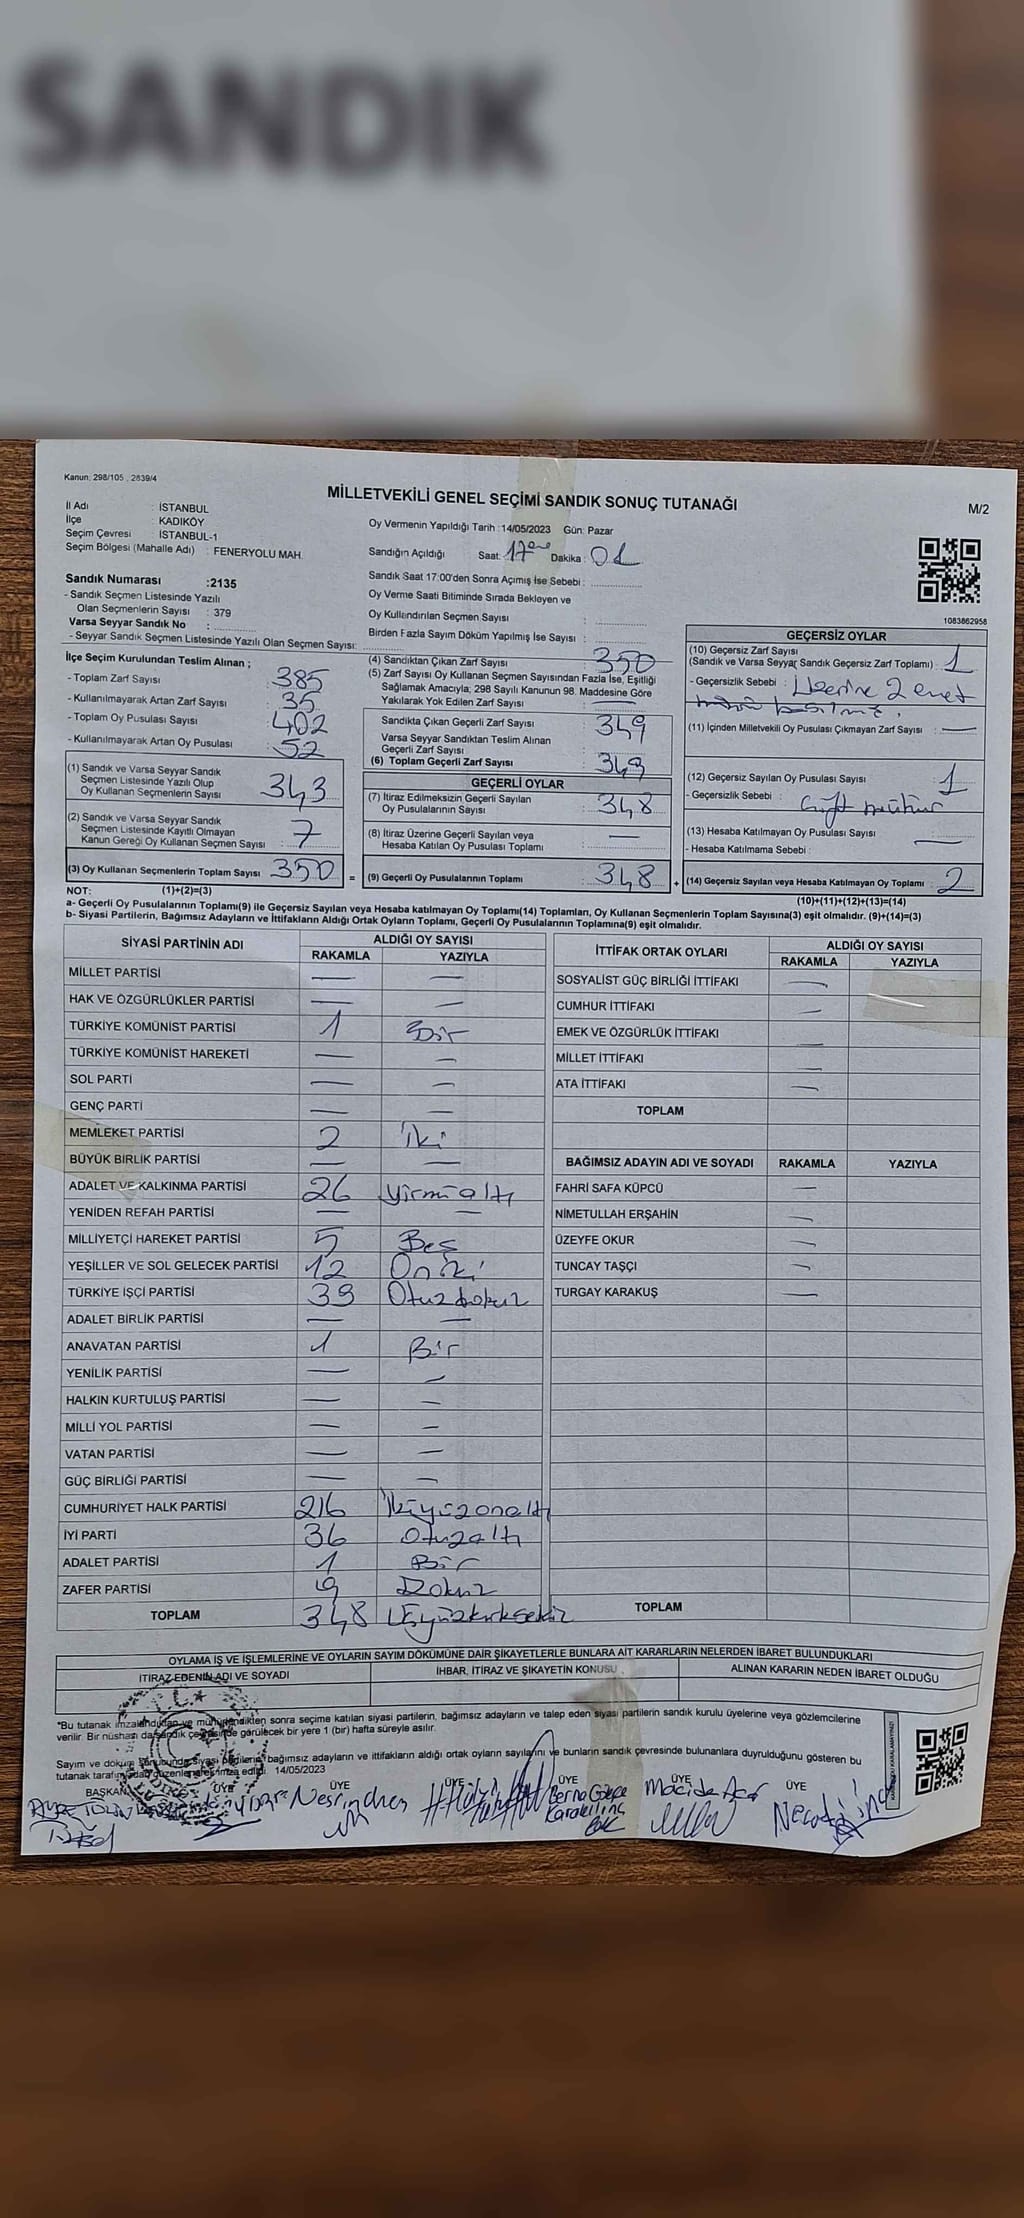 SANDIK
Kanun: 298/105 , 2839/4
MİLLETVEKİLİ GENEL SEÇİMİ SANDIK SONUÇ TUTANAĞI
M/2
İl Adı : İSTANBUL
İlçe : KADIKÖY
Seçim Çevresi : İSTANBUL-1
Seçim Bölgesi (Mahalle Adı) : FENERYOLU MAH.
Oy Vermenin Yapıldığı Tarih : 14/05/2023 Gün: Pazar
Sandığın Açıldığı Saat: 17 Dakika : 01
Sandık Saat 17:00'den Sonra Açılmış İse Sebebi :
Oy Verme Saati Bitiminde Sırada Bekleyen ve
Oy Kullandırılan Seçmen Sayısı :
Birden Fazla Sayım Döküm Yapılmış İse Sayısı :
1083862958
Sandık Numarası :2135
- Sandık Seçmen Listesinde Yazılı
Olan Seçmenlerin Sayısı : 379
Varsa Seyyar Sandık No :
- Seyyar Sandık Seçmen Listesinde Yazılı Olan Seçmen Sayısı:
İlçe Seçim Kurulundan Teslim Alınan ;
- Toplam Zarf Sayısı : 385
- Kullanılmayarak Artan Zarf Sayısı : 35
- Toplam Oy Pusulası Sayısı : 402
- Kullanılmayarak Artan Oy Pusulası : 52
(1) Sandık ve Varsa Seyyar Sandık
Seçmen Listesinde Yazılı Olup
Oy Kullanan Seçmenlerin Sayısı : 343
(2) Sandık ve Varsa Seyyar Sandık
Seçmen Listesinde Kayıtlı Olmayan
Kanun Gereği Oy Kullanan Seçmen Sayısı : 7
(3) Oy Kullanan Seçmenlerin Toplam Sayısı : 350
(4) Sandıktan Çıkan Zarf Sayısı : 350
(5) Zarf Sayısı Oy Kullanan Seçmen Sayısından Fazla İse, Eşitliği
Sağlamak Amacıyla; 298 Sayılı Kanunun 98. Maddesine Göre
Yakılarak Yok Edilen Zarf Sayısı : —
Sandıkta Çıkan Geçerli Zarf Sayısı : 349
Varsa Seyyar Sandıktan Teslim Alınan
Geçerli Zarf Sayısı :
(6) Toplam Geçerli Zarf Sayısı : 349
GEÇERLİ OYLAR
(7) İtiraz Edilmeksizin Geçerli Sayılan
Oy Pusulalarının Sayısı : 348
(8) İtiraz Üzerine Geçerli Sayılan veya
Hesaba Katılan Oy Pusulası Toplamı : —
= (9) Geçerli Oy Pusulalarının Toplamı : 348
GEÇERSİZ OYLAR
(10) Geçersiz Zarf Sayısı
(Sandık ve Varsa Seyyar Sandık Geçersiz Zarf Toplamı) : 1
- Geçersizlik Sebebi : Üzerine 2 evet
(11) İçinden Milletvekili Oy Pusulası Çıkmayan Zarf Sayısı : —
(12) Geçersiz Sayılan Oy Pusulası Sayısı : 1
- Geçersizlik Sebebi : Çift mühür
(13) Hesaba Katılmayan Oy Pusulası Sayısı : —
- Hesaba Katılmama Sebebi :
+ (14) Geçersiz Sayılan veya Hesaba Katılmayan Oy Toplamı : 2
NOT: (1)+(2)=(3)
(10)+(11)+(12)+(13)=(14)
a- Geçerli Oy Pusulalarının Toplamı(9) ile Geçersiz Sayılan veya Hesaba katılmayan Oy Toplamı(14) Toplamları, Oy Kullanan Seçmenlerin Toplam Sayısına(3) eşit olmalıdır. (9)+(14)=(3)
b- Siyasi Partilerin, Bağımsız Adayların ve İttifakların Aldığı Oyların Toplamı, Geçerli Oy Pusulalarının Toplamına(9) eşit olmalıdır.
SİYASİ PARTİNİN ADI ALDIĞI OY SAYISI
RAKAMLA YAZIYLA
MİLLET PARTİSİ — —
HAK VE ÖZGÜRLÜKLER PARTİSİ — —
TÜRKİYE KOMÜNİST PARTİSİ 1 Bir
TÜRKİYE KOMÜNİST HAREKETİ — —
SOL PARTİ — —
GENÇ PARTİ — —
MEMLEKET PARTİSİ 2 İki
BÜYÜK BİRLİK PARTİSİ — —
ADALET VE KALKINMA PARTİSİ 26 yirmialtı
YENİDEN REFAH PARTİSİ — —
MİLLİYETÇİ HAREKET PARTİSİ 5 Beş
YEŞİLLER VE SOL GELECEK PARTİSİ 12 Oniki
TÜRKİYE İŞÇİ PARTİSİ 39 Otuzdokuz
ADALET BİRLİK PARTİSİ — —
ANAVATAN PARTİSİ 1 Bir
YENİLİK PARTİSİ — —
HALKIN KURTULUŞ PARTİSİ — —
MİLLİ YOL PARTİSİ — —
VATAN PARTİSİ — —
GÜÇ BİRLİĞİ PARTİSİ — —
CUMHURİYET HALK PARTİSİ 216 İkiyüzonaltı
İYİ PARTİ 36 Otuzaltı
ADALET PARTİSİ 1 Bir
ZAFER PARTİSİ 9 Dokuz
TOPLAM 348 Üçyüzkırksekiz
İTTİFAK ORTAK OYLARI ALDIĞI OY SAYISI
RAKAMLA YAZIYLA
SOSYALİST GÜÇ BİRLİĞİ İTTİFAKI —
CUMHUR İTTİFAKI —
EMEK VE ÖZGÜRLÜK İTTİFAKI —
MİLLET İTTİFAKI —
ATA İTTİFAKI —
TOPLAM
BAĞIMSIZ ADAYIN ADI VE SOYADI RAKAMLA YAZIYLA
FAHRİ SAFA KÜPCÜ —
NİMETULLAH ERŞAHİN —
ÜZEYFE OKUR —
TUNCAY TAŞÇI —
TURGAY KARAKUŞ —
TOPLAM
OYLAMA İŞ VE İŞLEMLERİNE VE OYLARIN SAYIM DÖKÜMÜNE DAİR ŞİKAYETLERLE BUNLARA AİT KARARLARIN NELERDEN İBARET BULUNDUKLARI
İTİRAZ EDENİN ADI VE SOYADI İHBAR, İTİRAZ VE ŞİKAYETİN KONUSU ALINAN KARARIN NEDEN İBARET OLDUĞU
*Bu tutanak imzalandıktan ve mühürlendikten sonra seçime katılan siyasi partilerin, bağımsız adayların ve talep eden siyasi partilerin sandık kurulu üyelerine veya gözlemcilerine
verilir. Bir nüshası da sandık çevresinde görülecek bir yere 1 (bir) hafta süreyle asılır.
Sayım ve döküm sonucunda siyasi partilerin, bağımsız adayların ve ittifakların aldığı ortak oyların sayılarını ve bunların sandık çevresinde bulunanlara duyrulduğunu gösteren bu
tutanak tarafımızdan düzenlenerek imza edildi. 14/05/2023
BAŞKAN ÜYE ÜYE ÜYE ÜYE ÜYE
Berna Gökçe
Karakılınç